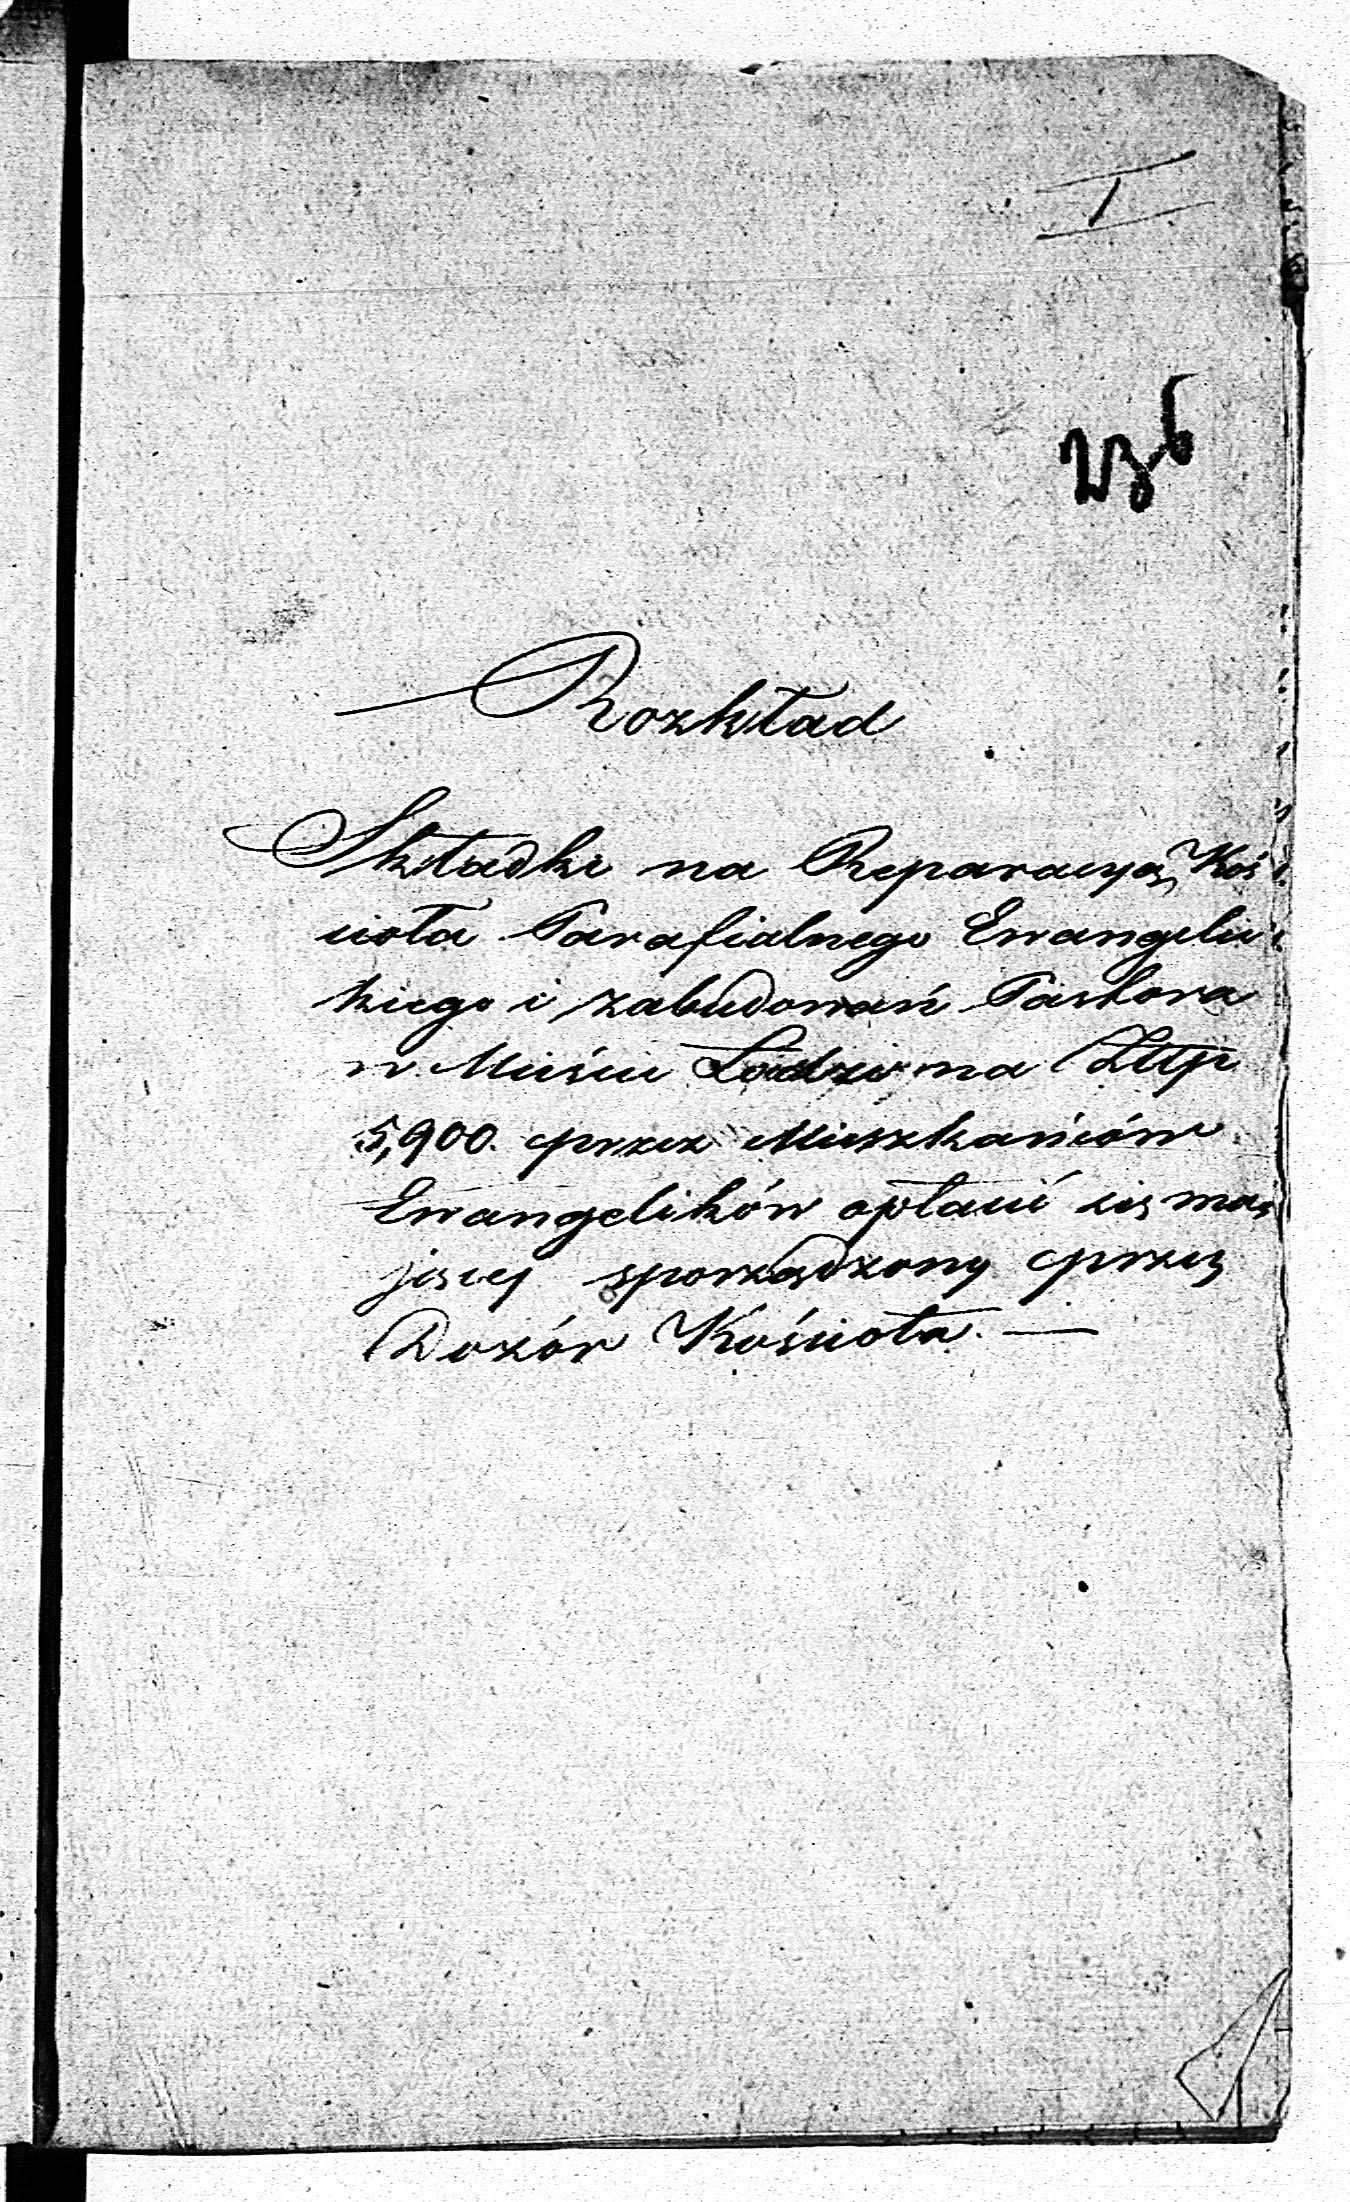 I
236
Rozkład
Składki na Reparacyą Koś
cioła Parafialnego Ewangelic
kiego i zabudowań Pastora
w Mieście Łodzi na Złtp
5,900. przez Mieszkańców
Ewangelików opłacić się ma
jącej sporządzony przez
Dozór Kościoła. —